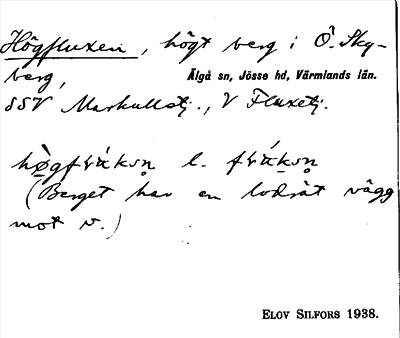 Högfluxen, högt berg i Ö. Sky-
berg,
Älgå sn, Jösse hd, Värmlands län.
SSV Markullstj., V Fluxetj.
l.
(Berget har en lodrät vägg
mot v.)
ELOV SILFORS 1938.